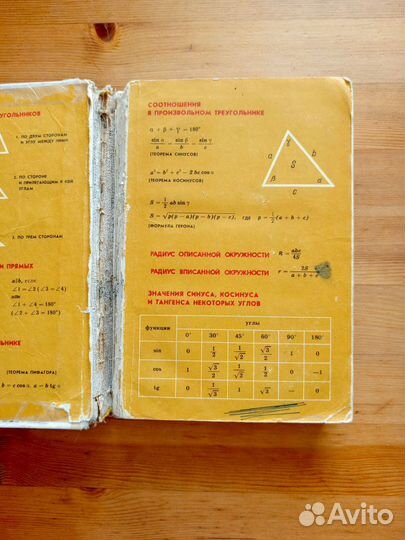 УГОЛЬНИКОВ
1. ПО ДВУМ СТОРОНАМ
И УГЛУ МЕЖДУ НИМИ
2. ПО СТОРОНЕ
И ПРИЛЕГАЮЩИМ К НЕЙ
УГЛАМ
3. ПО ТРЕМ СТОРОНАМ
И ПРЯМЫХ
a||b, если
∠1 = ∠3 (∠3 = ∠4)
или
∠1 + ∠4 = 180°
(∠2 + ∠3 = 180°)
ЬНИКЕ
(ТЕОРЕМА ПИФАГОРА)
b = c cos α, a = b tg α
СООТНОШЕНИЯ
В ПРОИЗВОЛЬНОМ ТРЕУГОЛЬНИКЕ
α + β + γ = 180°
sin α / a = sin β / b = sin γ / c
(ТЕОРЕМА СИНУСОВ)
a² = b² + c² − 2 bc cos α
(ТЕОРЕМА КОСИНУСОВ)
γ
a b
S
β α
C
S = 1/2 ab sin γ
S = √p(p − a)(p − b)(p − c), где p = 1/2 (a + b + c)
(ФОРМУЛА ГЕРОНА)
РАДИУС ОПИСАННОЙ ОКРУЖНОСТИ R = abc/4S
РАДИУС ВПИСАННОЙ ОКРУЖНОСТИ r = 2S/a + b + c
ЗНАЧЕНИЯ СИНУСА, КОСИНУСА
И ТАНГЕНСА НЕКОТОРЫХ УГЛОВ
функции углы
0° 30° 45° 60° 90° 180°
sin 0 1/2 1/√2 √3/2 1 0
cos 1 √3/2 1/√2 1/2 0 −1
tg 0 1/√3 1 √3 — 0
Avito